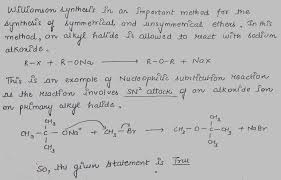 Williamson synthesis is an important method for the
synthesis of symmetrical and unsymmetrical ethers. In this
method, an alkyl halide is allowed to react with sodium
alkoxide.
R-X + R-ONa → R-O-R + NaX
This is an example of Nucleophilic substitution reaction
as the reaction involves SN² attack of an alkoxide ion
on primary alkyl halide.
CH₃ CH₃
CH₃-C-ONa + CH₃-Br → CH₃-O-C-CH₃ + NaBr
CH₃ CH₃
So, the given statement is True